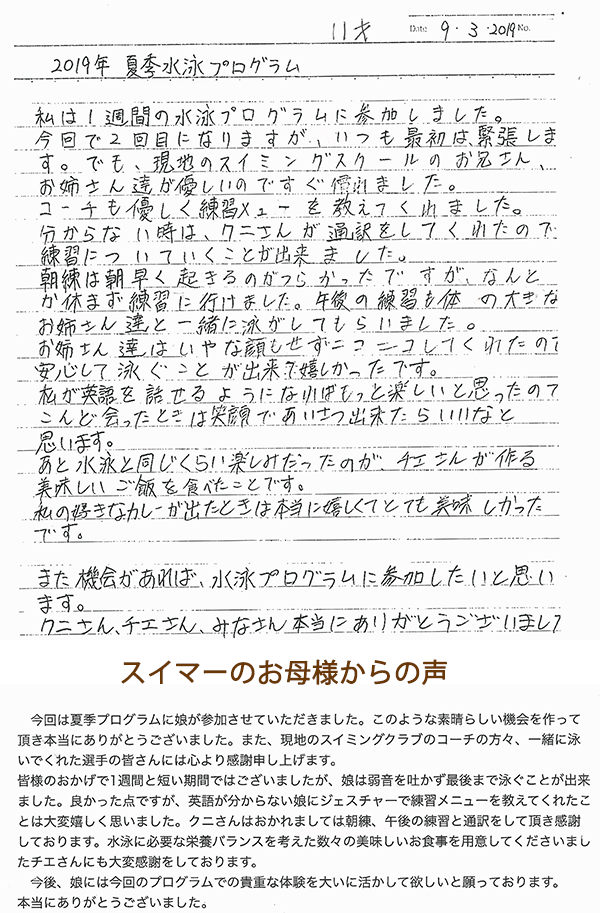 11才
Date 9・3・2019 No.
2019年 夏季水泳プログラム
私は1週間の水泳プログラムに参加しました。
今回で2回目になりますが、いつも最初は、緊張しま
す。でも、現地のスイミングスクールのお兄さん、
お姉さん達が優しいのですぐ慣れました。
コーチも優しく練習メューを教えてくれました。
分からない時は、クニさんが通訳をしてくれたので
練習についていくことが出来ました。
朝練は朝早く起きるのがつらかったですが、なんと
か休まず練習に行けました。午後の練習も体の大きな
お姉さん達と一緒に泳がしてもらいました。
お姉さん達はいやな顔もせずニコニコしてくれたので
安心して泳ぐことが出来て嬉しかったです。
私が英語を話せるようになればもっと楽しいと思ったので
こんど会ったときは笑顔であいさつ出来たらいいなと
思います。
あと水泳と同じくらい楽しみだったのが、チエさんが作る
美味しいご飯を食べたことです。
私の好きなカレーが出たときは本当に嬉しくてとても美味しかった
です。
また機会があれば、水泳プログラムに参加したいと思い
ます。
クニさん、チエさん、みなさん本当にありがとうございまして
スイマーのお母様からの声
今回は夏季プログラムに娘が参加させていただきました。このような素晴らしい機会を作って
頂き本当にありがとうございました。また、現地のスイミングクラブのコーチの方々、一緒に泳
いでくれた選手の皆さんには心より感謝申し上げます。
皆様のおかげで1週間と短い期間ではございましたが、娘は弱音を吐かず最後まで泳ぐことが出来
ました。良かった点ですが、英語が分からない娘にジェスチャーで練習メニューを教えてくれたこ
とは大変嬉しく思いました。クニさんはおかれましては朝練、午後の練習と通訳をして頂き感謝
しております。水泳に必要な栄養バランスを考えた数々の美味しいお食事を用意してくださいまし
たチエさんにも大変感謝をしております。
今後、娘には今回のプログラムでの貴重な体験を大いに活かして欲しいと願っております。
本当にありがとうございました。